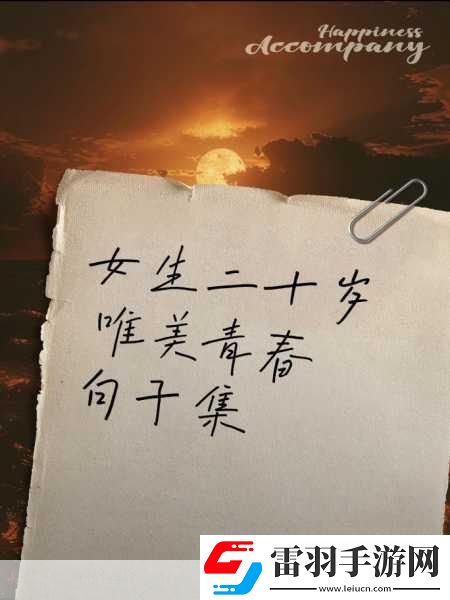 Happiness
Accompany
女生二十岁
唯美青春
句子集
雷羽手游网
www.leiucn.com